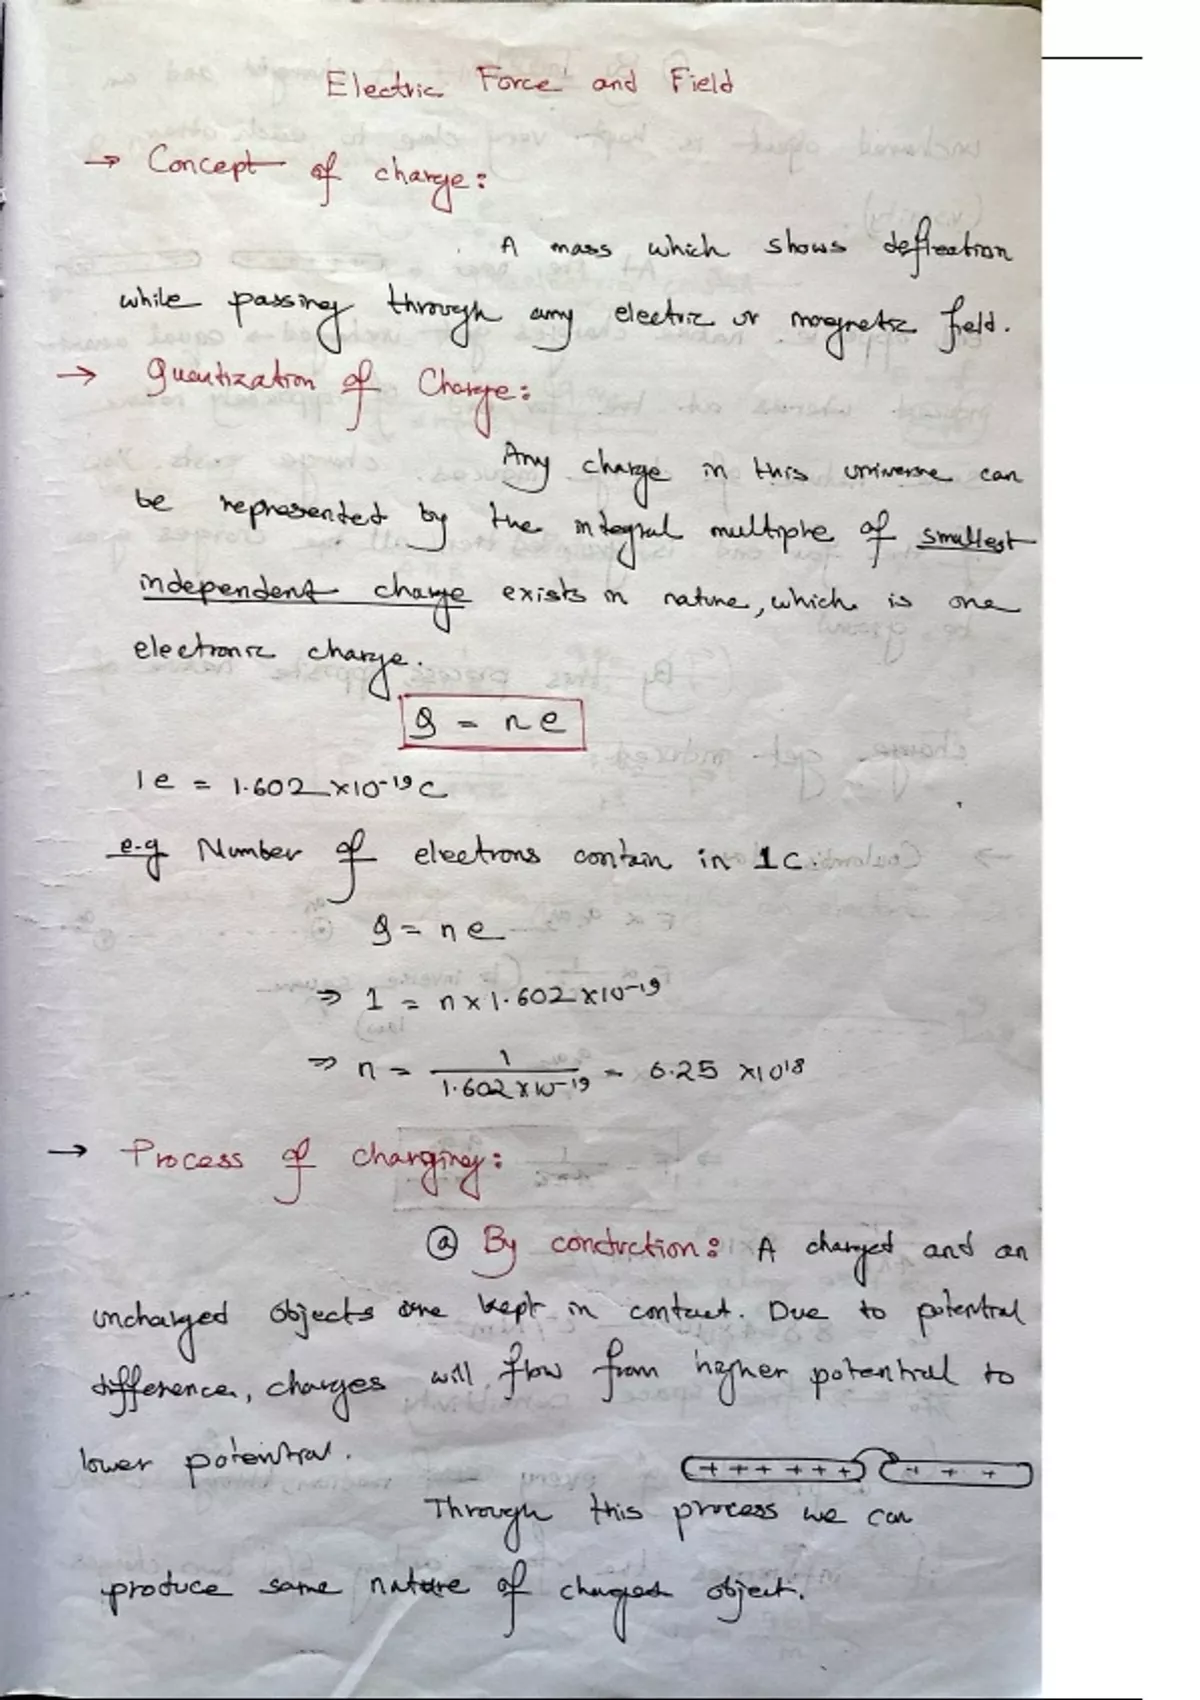 Electric Force and Field
→ Concept of charge:
A mass which shows deflection
while passing through any electric or magnetic field.
→ Quantization of Charge:
Any charge in this universe can
be represented by the integral multiple of smallest
independent charge exists in nature, which is one
electronic charge.
Q = ne
1e = 1.602 × 10⁻¹⁹ C
e.g Number of electrons contain in 1C.
Q = ne
⇒ 1 = n × 1.602 × 10⁻¹⁹
⇒ n = 1 / 1.602 × 10⁻¹⁹ = 6.25 × 10¹⁸
→ Process of charging:
ⓐ By conduction: A charged and an
uncharged objects are kept in contact. Due to potential
difference, charges will flow from higher potential to
lower potential.
+ + + + + + + + +
Through this process we can
produce same nature of charged object.